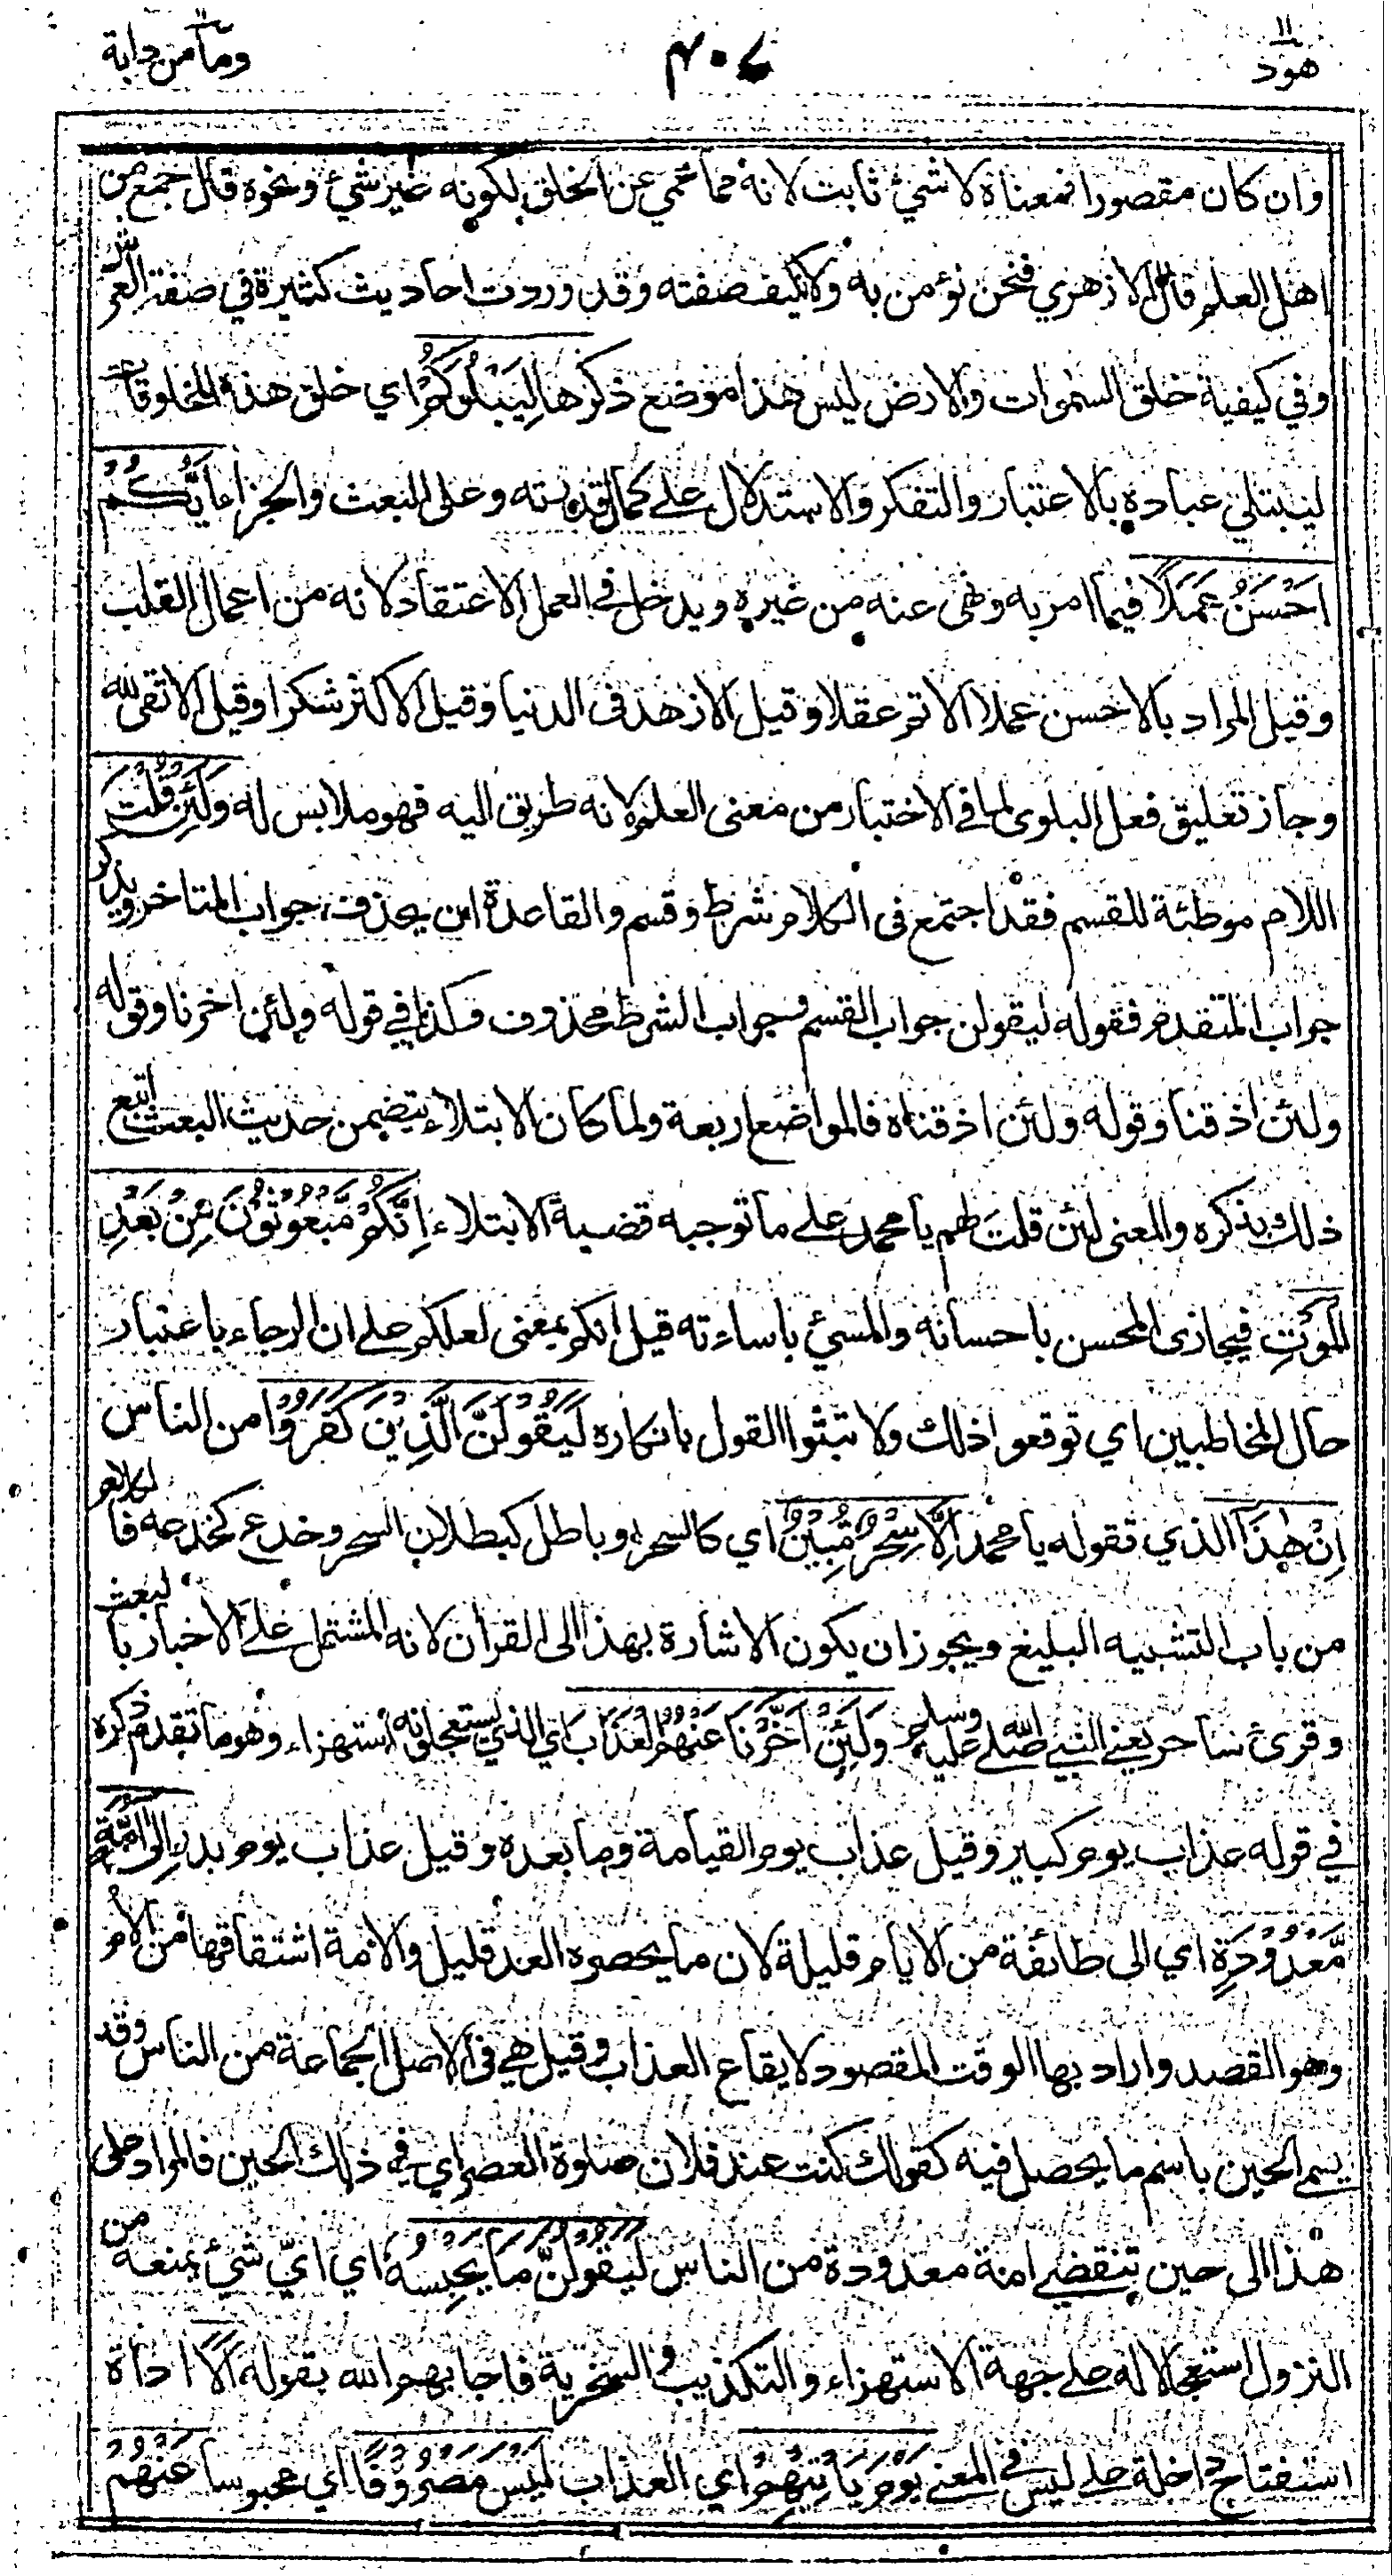 هود ١١
٤٠٧
ومآمن دابة ١٢
وان كان مقصورا فمعناه لا شيئ ثابت لانه مما عمي عن الخلق لكونه غير شيئ ونحوه قال جمع من
اهل العلم قال الازهري فنحن نؤمن به ولا نكيف صفته وقد وردت احاديث كثيرة في صفة العرش
وفي كيفية خلق السموات والارض ليس هذا موضع ذكرها لِيَبْلُوَكُمْ اي خلق هذه المخلوقات
ليبتلي عباده بالاعتبار والتفكر والاستدلال على كمال قدرته وعلى البعث والجزاء اَيُّكُمْ
اَحْسَنُ عَمَلًا فيما امر به ونهى عنه من غيره ويدخل في العمل الاعتقاد لانه من اعمال القلب
وقيل المراد بالاحسن عملا الاتم عقلا وقيل الازهد في الدنيا وقيل الاكثر شكرا وقيل الاتقى لله
وجاز تعليق فعل البلوى لما في الاختبار من معنى العلم لانه طريق اليه فهو ملابس له وَلَئِنْ قُلْتَ
اللام موطئة للقسم فقد اجتمع في الكلام شرط وقسم والقاعدة ان يحذف جواب المتاخر ويذكر
جواب المتقدم فقوله ليقولن جواب القسم وجواب الشرط محذوف وكذا في قوله ولئن اخرنا وقوله
ولئن اذقنا وقوله ولئن اذقناه فالمواضع اربعة ولما كان الابتلاء يتضمن حديث البعث اتبع
ذلك بذكره والمعنى لئن قلت لهم يا محمد على ما توجبه قضية الابتلاء اِنَّكُمْ مَّبْعُوْثُوْنَ مِنْ بَعْدِ
الْمَوْتِ فيجازى المحسن باحسانه والمسيئ باساءته قيل انكم بمعنى لعلكم على ان الرجاء باعتبار
حال المخاطبين اي توقعوا ذلك ولا تبتوا القول بانكاره لَيَقُوْلَنَّ الَّذِيْنَ كَفَرُوْا من الناس
اِنْ هٰذَا الذي تقوله يا محمد اِلَّا سِحْرٌ مُّبِيْنٌ اي كالسحر وباطل كبطلان السحر وخدع كخدعه فالكلام
من باب التشبيه البليغ ويجوز ان يكون الاشارة بهذا الى القران لانه المشتمل على الاخبار بالبعث
وقرئ ساحر يعني النبي صلى الله عليه وسلم وَلَئِنْ اَخَّرْنَا عَنْهُمُ الْعَذَابَ اي الذي يستعجلونه استهزاء وهو ما تقدم ذكره
في قوله عذاب يوم كبير وقيل عذاب يوم القيامة وما بعده وقيل عذاب يوم بدر اِلٰى اُمَّةٍ
مَّعْدُوْدَةٍ اي الى طائفة من الايام قليلة لان ما يحصره العد قليل والامة اشتقاقها من الام
وهو القصد واراد بها الوقت المقصود لايقاع العذاب وقيل هي في الاصل الجماعة من الناس وقد
يسمى الحين باسم ما يحصل فيه كقولك كنت عند فلان صلوة العصر اي في ذلك الحين فالمراد على
هذا الى حين تنقضي امة معدودة من الناس لَيَقُوْلُنَّ مَا يَحْبِسُهٗ اي ايّ شيئ يمنعه من
النزول استعجالا له على جهة الاستهزاء والتكذيب والسخرية فاجابهم الله بقوله اَلَا اداة
استفتاح داخلة على ليس في المعنى يَوْمَ يَأْتِيْهِمْ اي العذاب لَيْسَ مَصْرُوْفًا اي محبوسا عَنْهُمْ